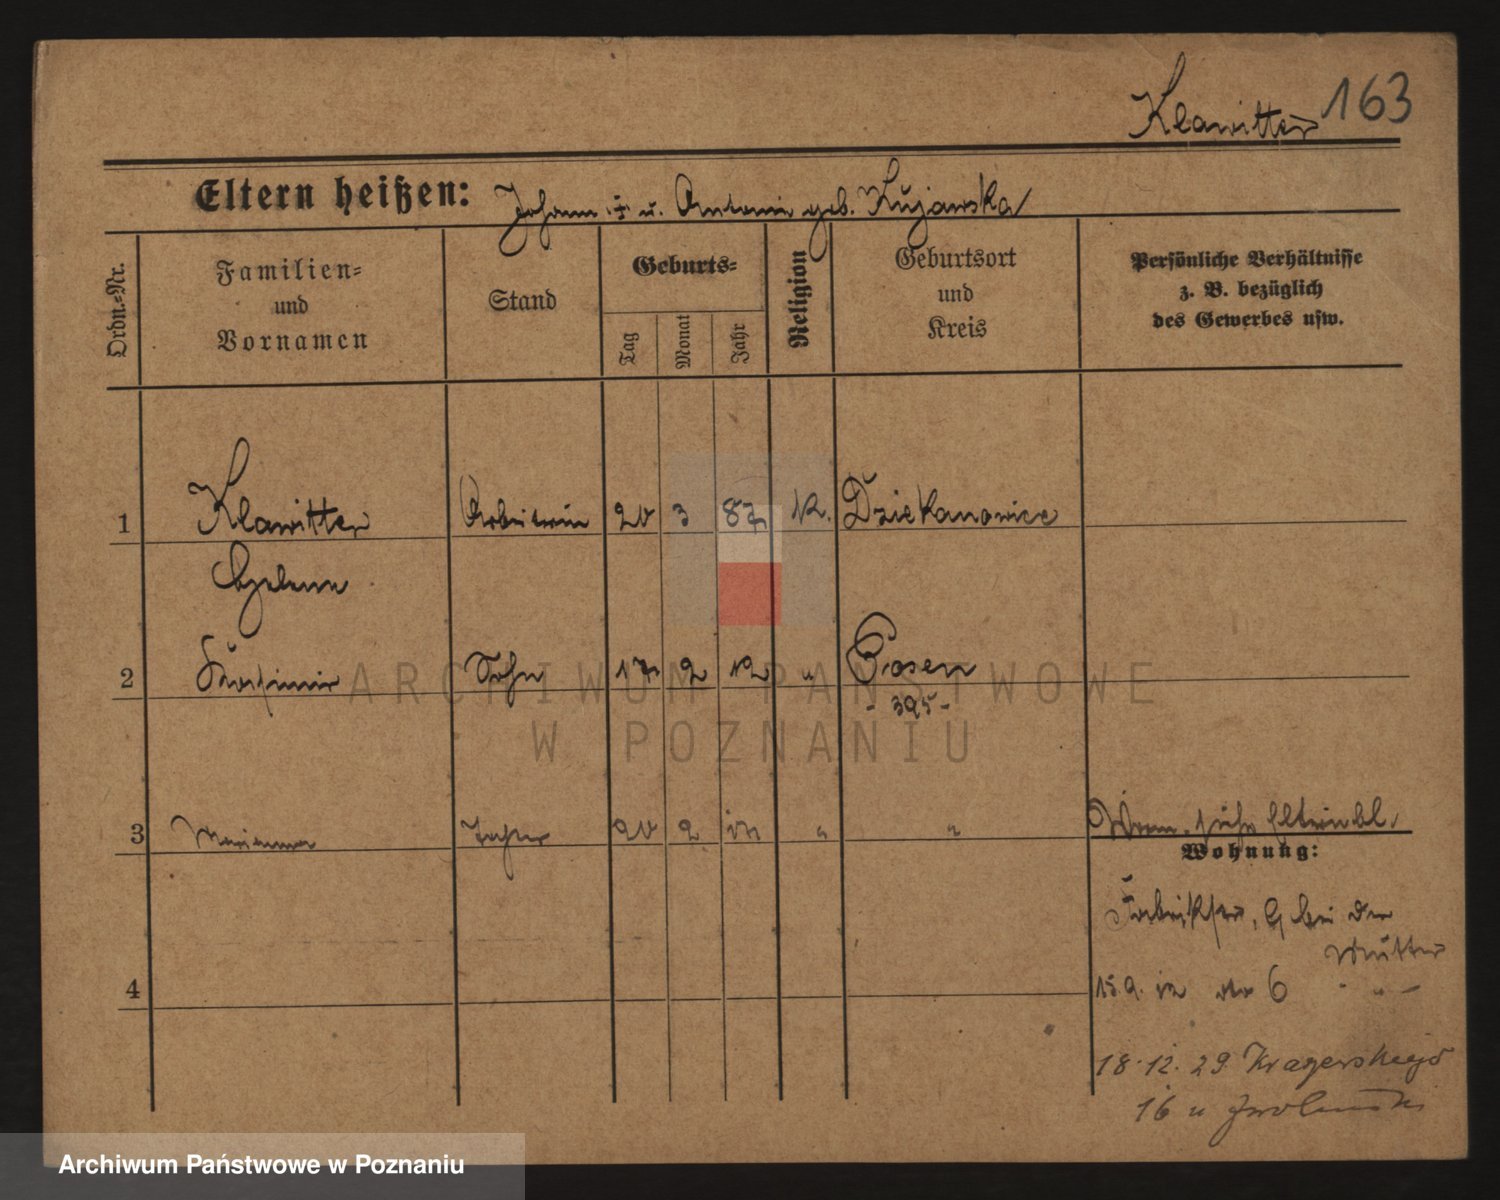 Klawitter 163
Eltern heißen: Johann † u. Antonie geb. Kujawska
Ordn.-Nr.
Familien-
und
Vornamen
Stand
Geburts-
Tag
Monat
Jahr
Religion
Geburtsort
und
Kreis
Persönliche Verhältnisse
z. B. bezüglich
des Gewerbes usw.
1 Klawitter Arbeiterin 20 3 87 K. Dziekanowice
Helene
2 Kasimir Sohn 17 2 12 " Posen
- 395 -
3 Marianna 20 2 " "
siehe Elternbl.
Wohnung:
Fabrikstr. 9 bei der
Mutter
4
15 9. 6 " -
18.12.29
16 u
ARCHIWUM PAŃSTWOWE
W POZNANIU
Archiwum Państwowe w Poznaniu